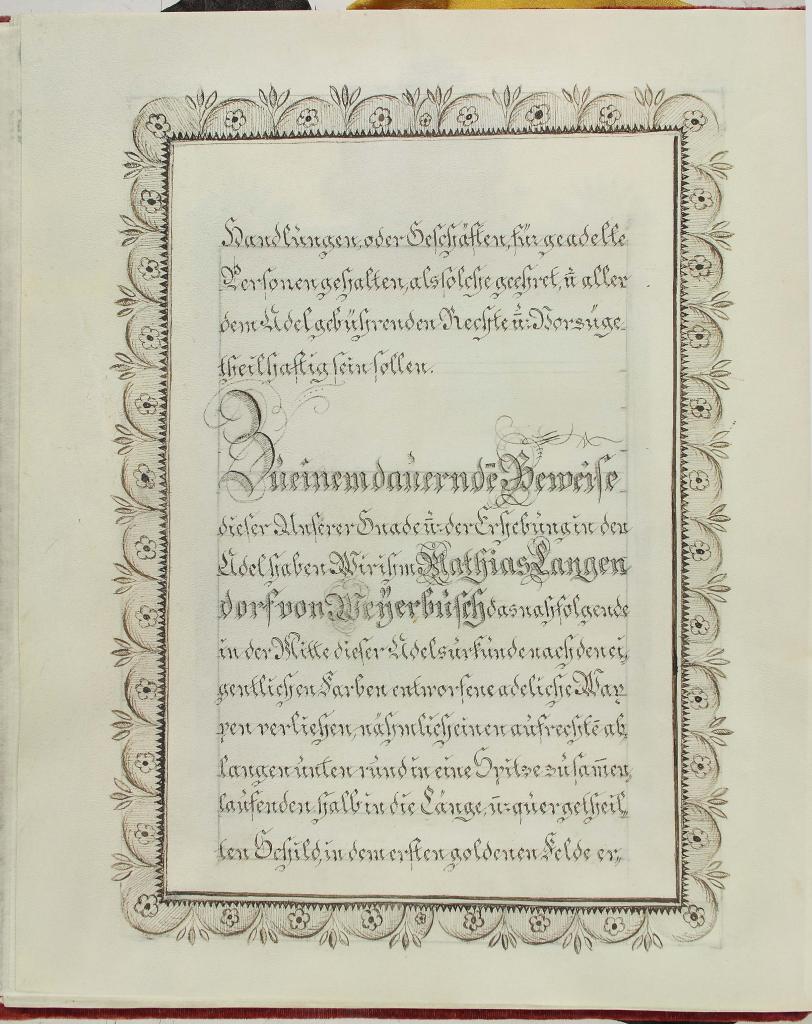 Handlungen, oder Geschäften, für geadelte
Personen gehalten, als solche geehret, ū aller
dem Adel gebührenden Rechte ū: Vorzüge
theilhaftig sein sollen.
Zu einem dauerndē Beweise
dieser Unserer Gnade ū: der Erhebung in den
Adel haben Wir ihm Mathias Langen
dorf von Weyerbusch das nahfolgende
in der Mitte dieser Adelsurkunde nach den ei,
gentlichen Farben entworfene adeliche Wap
pen verliehen, nähmlich einen aufrechtē ab
langen unten rund in eine Spitze zusam̄en,
laufenden halb in die Länge, ū: quer getheil,,
ten Schild, in dem ersten goldenen Felde er,,